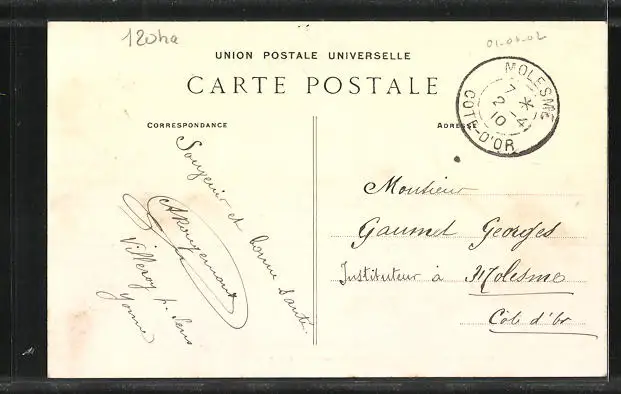 120ha
01-04-02
UNION POSTALE UNIVERSELLE
CARTE POSTALE
CORRESPONDANCE
ADRESSE
MOLESME
7 *
2 -4
10
COTE-D'OR
Souvenir et bonne Santé.
ARougemont
Villeroy p. Sens
Yonne
Monsieur
Gaumet Georges
Instituteur à Molesme
Côte d'Or